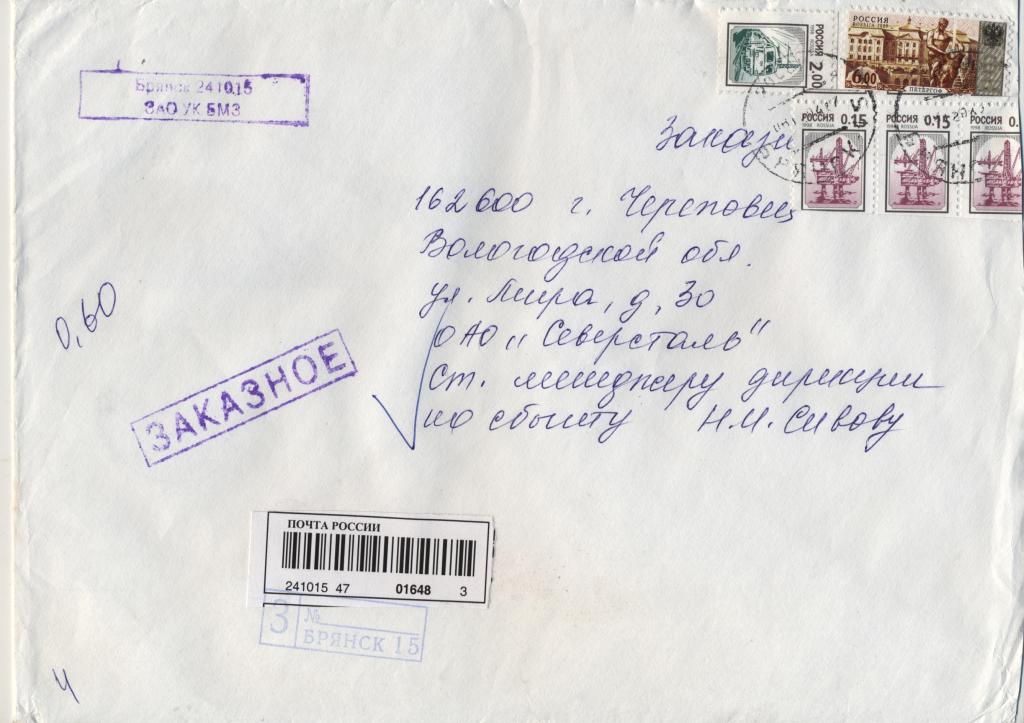 Брянск 241015
ЗАО УК БМЗ
РОССИЯ 2.00
РОССИЯ
ROSSIJA
6.00
ПЕТЕРГОФ
РОССИЯ 0.15
1998 ROSSIJA
РОССИЯ 0.15
1998 ROSSIJA
РОССИЯ 0.
1998 ROSSIJA
БРЯНСК
Заказн
162600 г. Череповец
Вологодской обл.
ул. Мира, д. 30
ОАО "Северсталь"
Ст. менеджеру дирекции
по сбыту Н.М. Сивову
0,60
ЗАКАЗНОЕ
ПОЧТА РОССИИ
241015 47 01648 3
З №
БРЯНСК 15
4